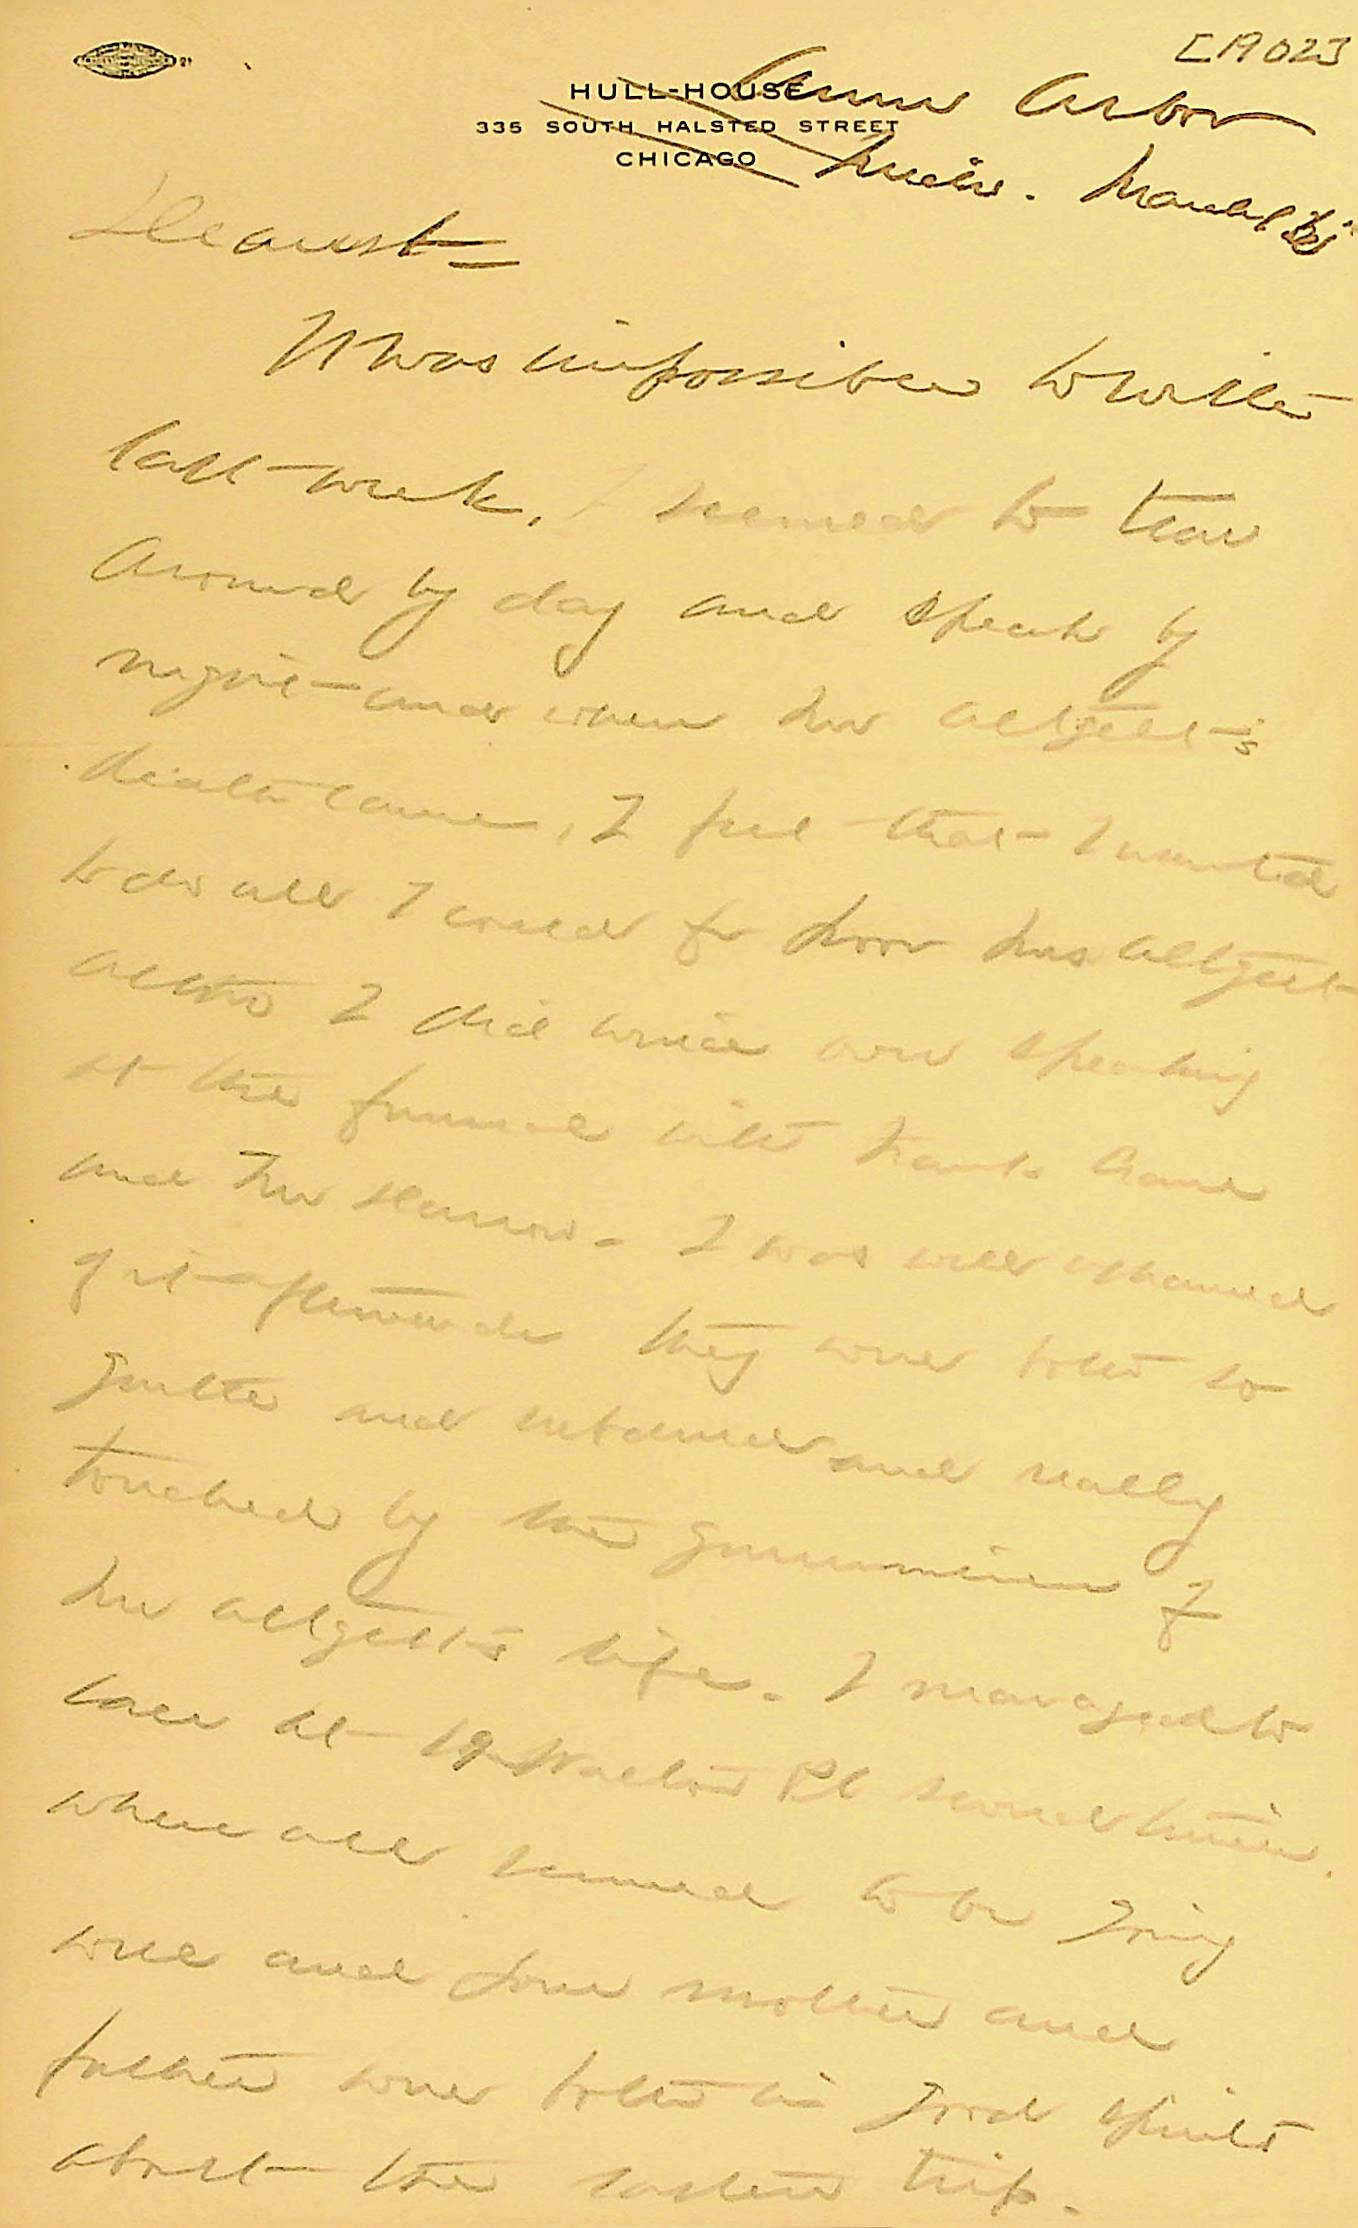 [1902]
HULL-HOUSE
335 SOUTH HALSTED STREET
CHICAGO
Ann Arbor
Mich. March
Dearest—
It was impossible to write
last week, I seemed to tear
around by day and speak by
night—and when Mr Altgelt's
death came, I feel that I wanted
to do all I could for poor Mrs Altgelt
altho I did twice over speaking
at the funeral with Frank Crane
and Mr Darrow. I was well ashamed
of it afterwards they were both so
gentle and subdued and really
touched by the genuineness of
Mr Altgelt's life. I managed to
call at 19 Walton Pl several times.
where all seemed to be going
well and your mother and
father were both in good spirits
about the eastern trip.